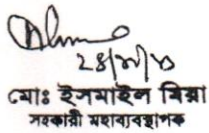 মোঃ ইসমাইল মিয়া
সহকারী মহাব্যবস্থাপক